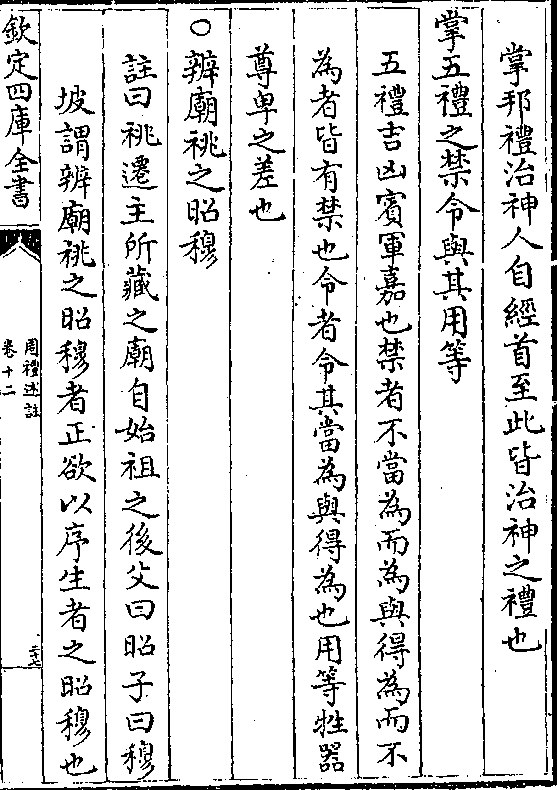 掌邦禮治神人自經首至此皆治神之禮也
掌五禮之禁令與其用等
五禮吉凶賓軍嘉也禁者不當為而為與得為而不
為者皆有禁也令者令其當為與得為也用等牲器
尊卑之差也
○辨廟祧之昭穆
註曰祧遷主所藏之廟自始祖之後父曰昭子曰穆
坡謂辨廟祧之昭穆者正欲以序生者之昭穆也
欽定四庫全書
周禮述註
卷十二